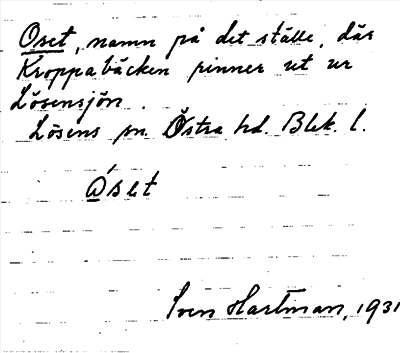 Oset, namn på det ställe, där
Kroppabäcken rinner ut ur
Lösensjön.
Lösens sn. Östra hd. Blek. l.
Óset
Sven Hartman, 1931